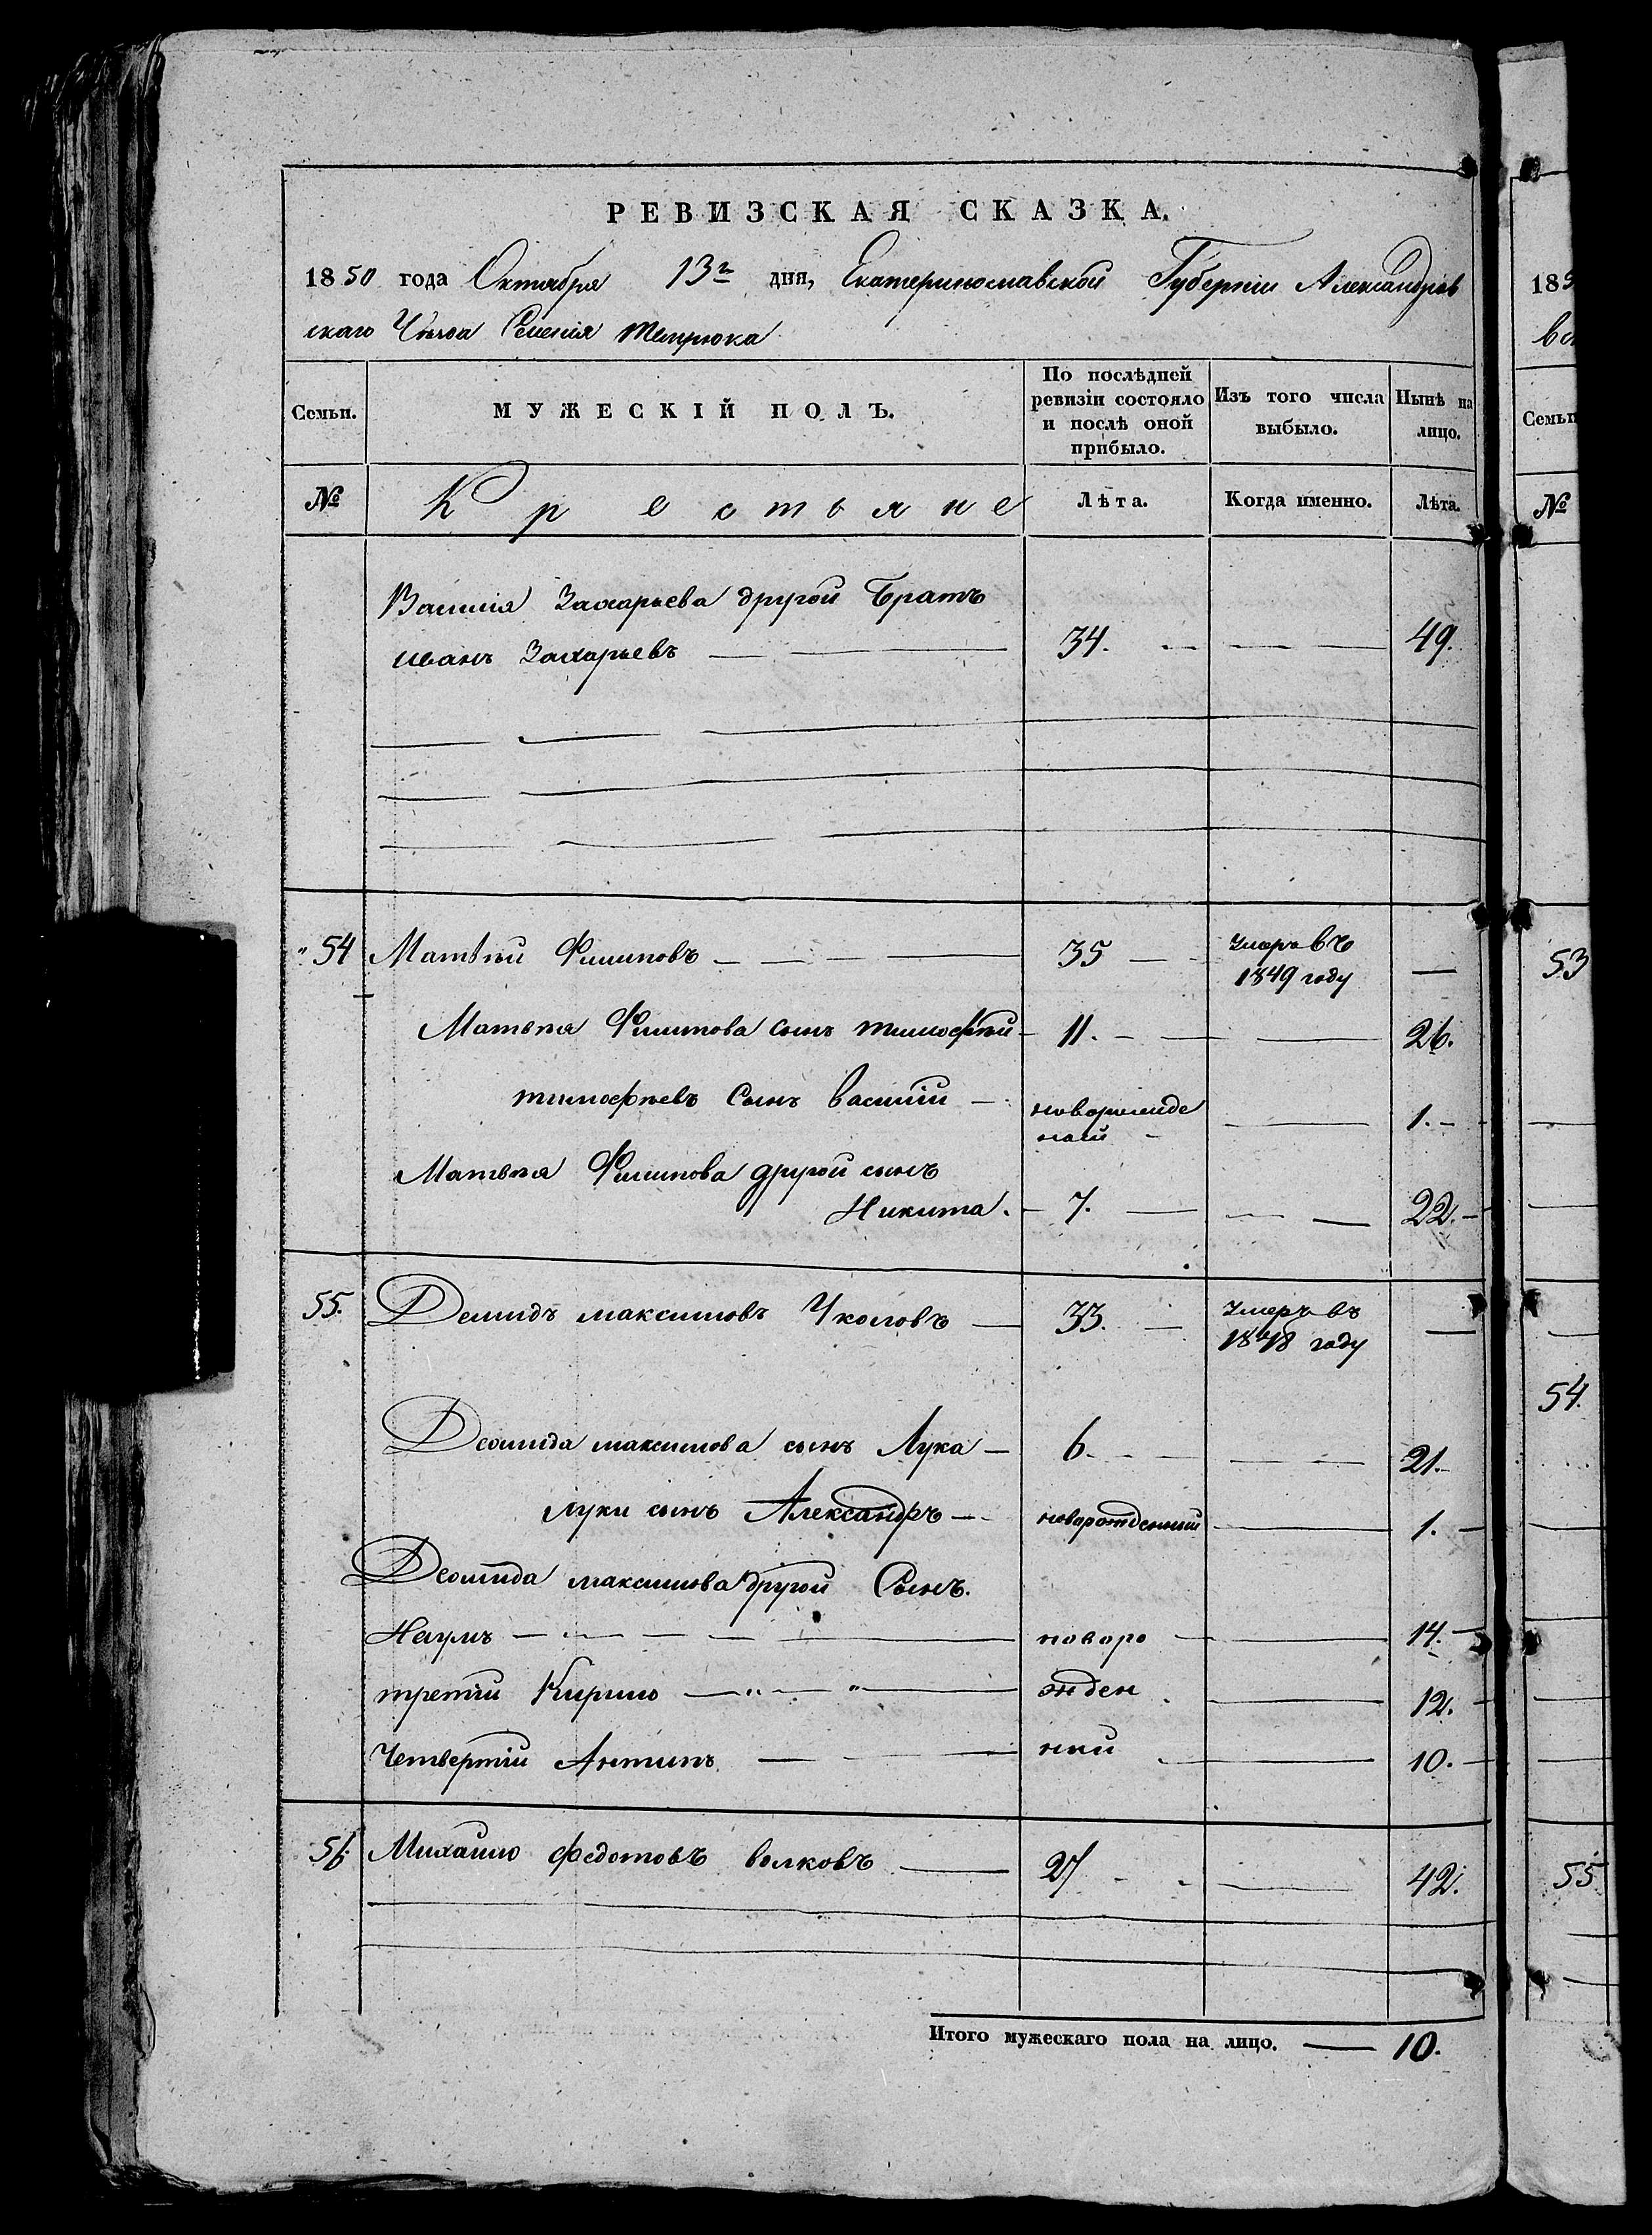 РЕВИЗСКАЯ СКАЗКА.
1850 года Октября 13го дня, Екатеринославской Губернiи Александров
скаго Уѣзда Селенiя Темрюка
Семьи. МУЖЕСКIЙ ПОЛЪ. По послѣдней ревизiи состояло и послѣ оной прибыло. Изъ того числа выбыло. Нынѣ на лицо.
№ Крестьяне Лѣта. Когда именно. Лѣта.
Василiя Захарьева другой братъ
иванъ Захарьевъ 34. 49.
54 Матвѣй Филиповъ 35 Умеръ въ 1849 году
Матвѣя Филипова сынъ тимофѣй 11. 26.
тимофѣевъ сынъ василiй новорожде ной 1.
Матвѣя Филипова другой сынъ
Никита. 7. 22.
55. Демидъ максимовъ Уколовъ 33. Умеръ въ 1848 году
Деомида максимова сынъ Лука 6. 21.
Луки сынъ Александръ новорожденный 1.
Деомида максимова другой Сынъ.
Наумъ новоро 14.
третiй Кирило жден 12.
Четвертiй Антипъ ный 10.
56. Михайло федотовъ волковъ 27 42.
Итого мужескаго пола на лицо. 10.
185
Семьи
№
53
54.
55